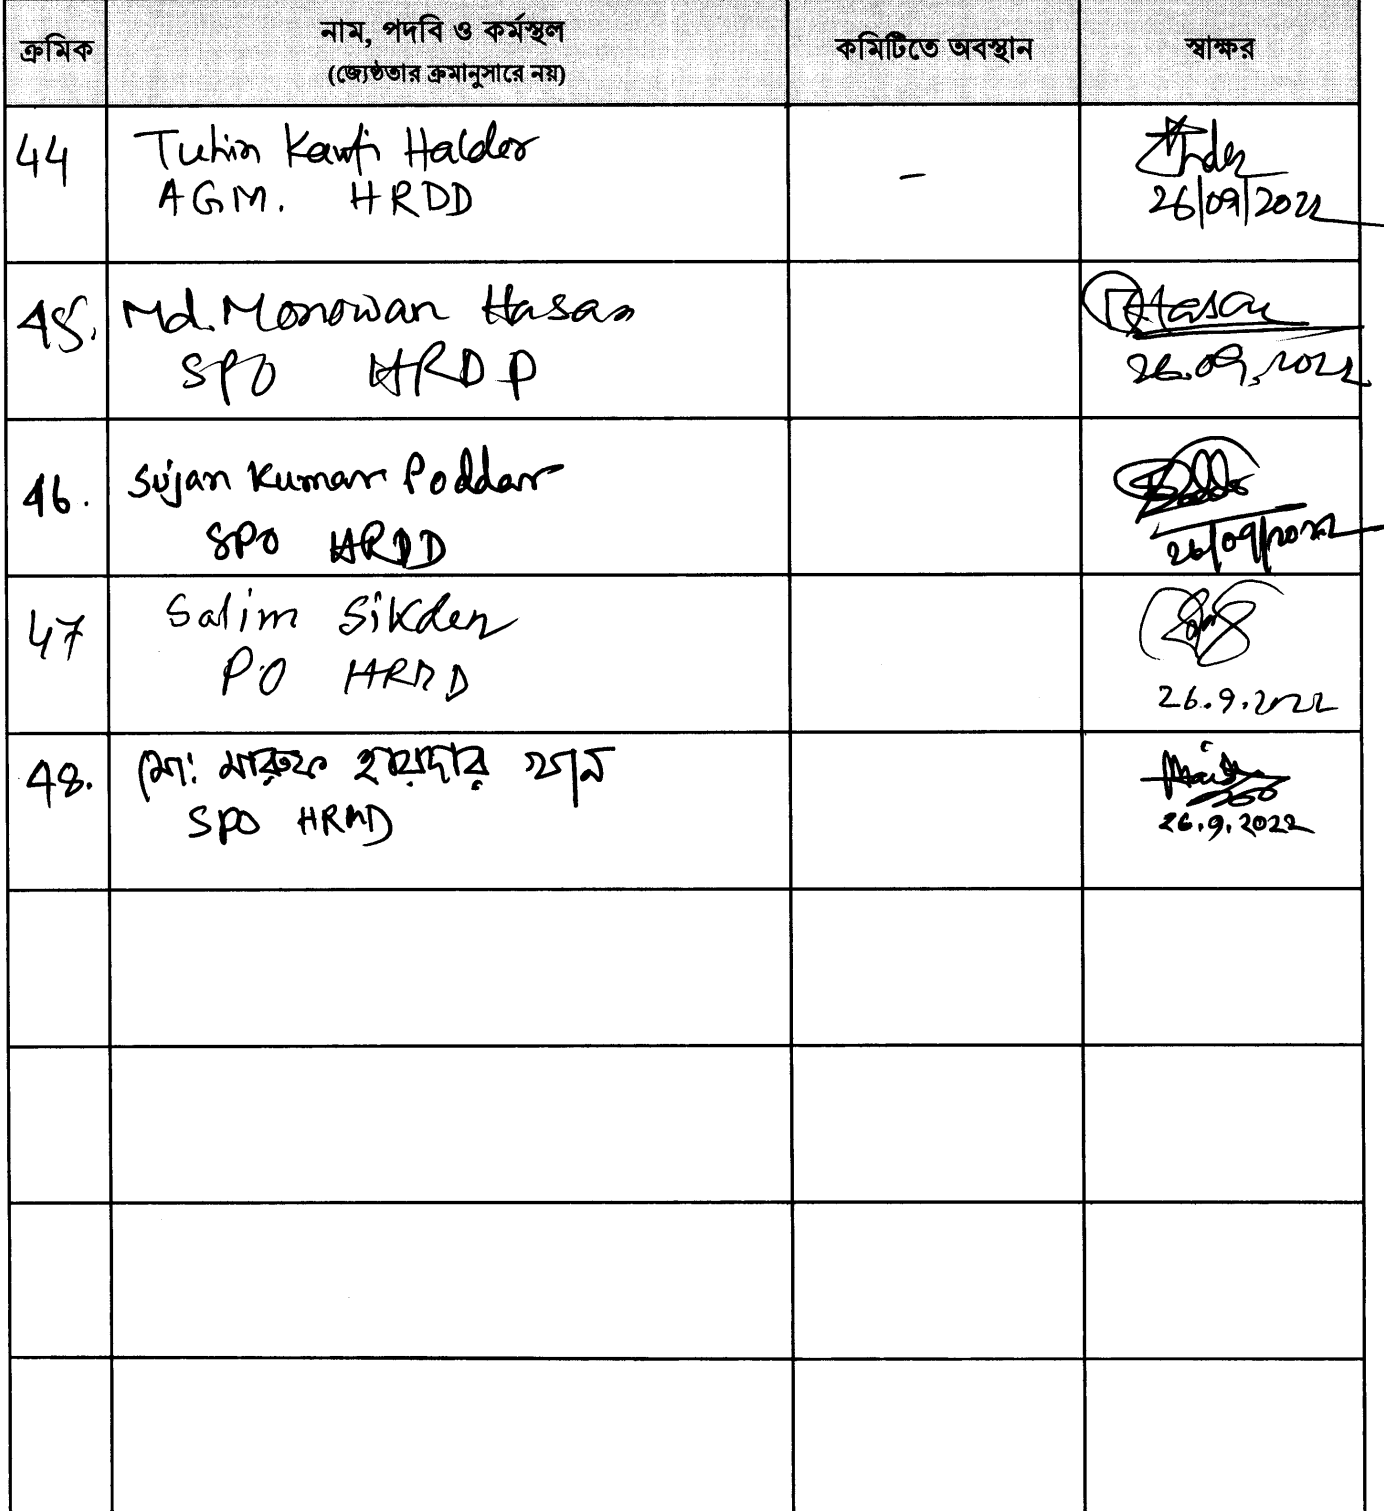 ক্রমিক
নাম, পদবি ও কর্মস্থল
(জ্যেষ্ঠতার ক্রমানুসারে নয়)
কমিটিতে অবস্থান
স্বাক্ষর
44
Tuhin Kanti Halder
AGM. HRDD
-
26/09/2022
45.
Md. Monowar Hasan
SPO HRDD
Hasan
26.09.2022
46.
Sujan Kumar Poddar
SPO HRDD
26/09/2022
47
Salim Sikder
PO HRMD
26.9.2022
48.
মো: মারুফ হায়দার খান
SPO HRMD
26.9.2022